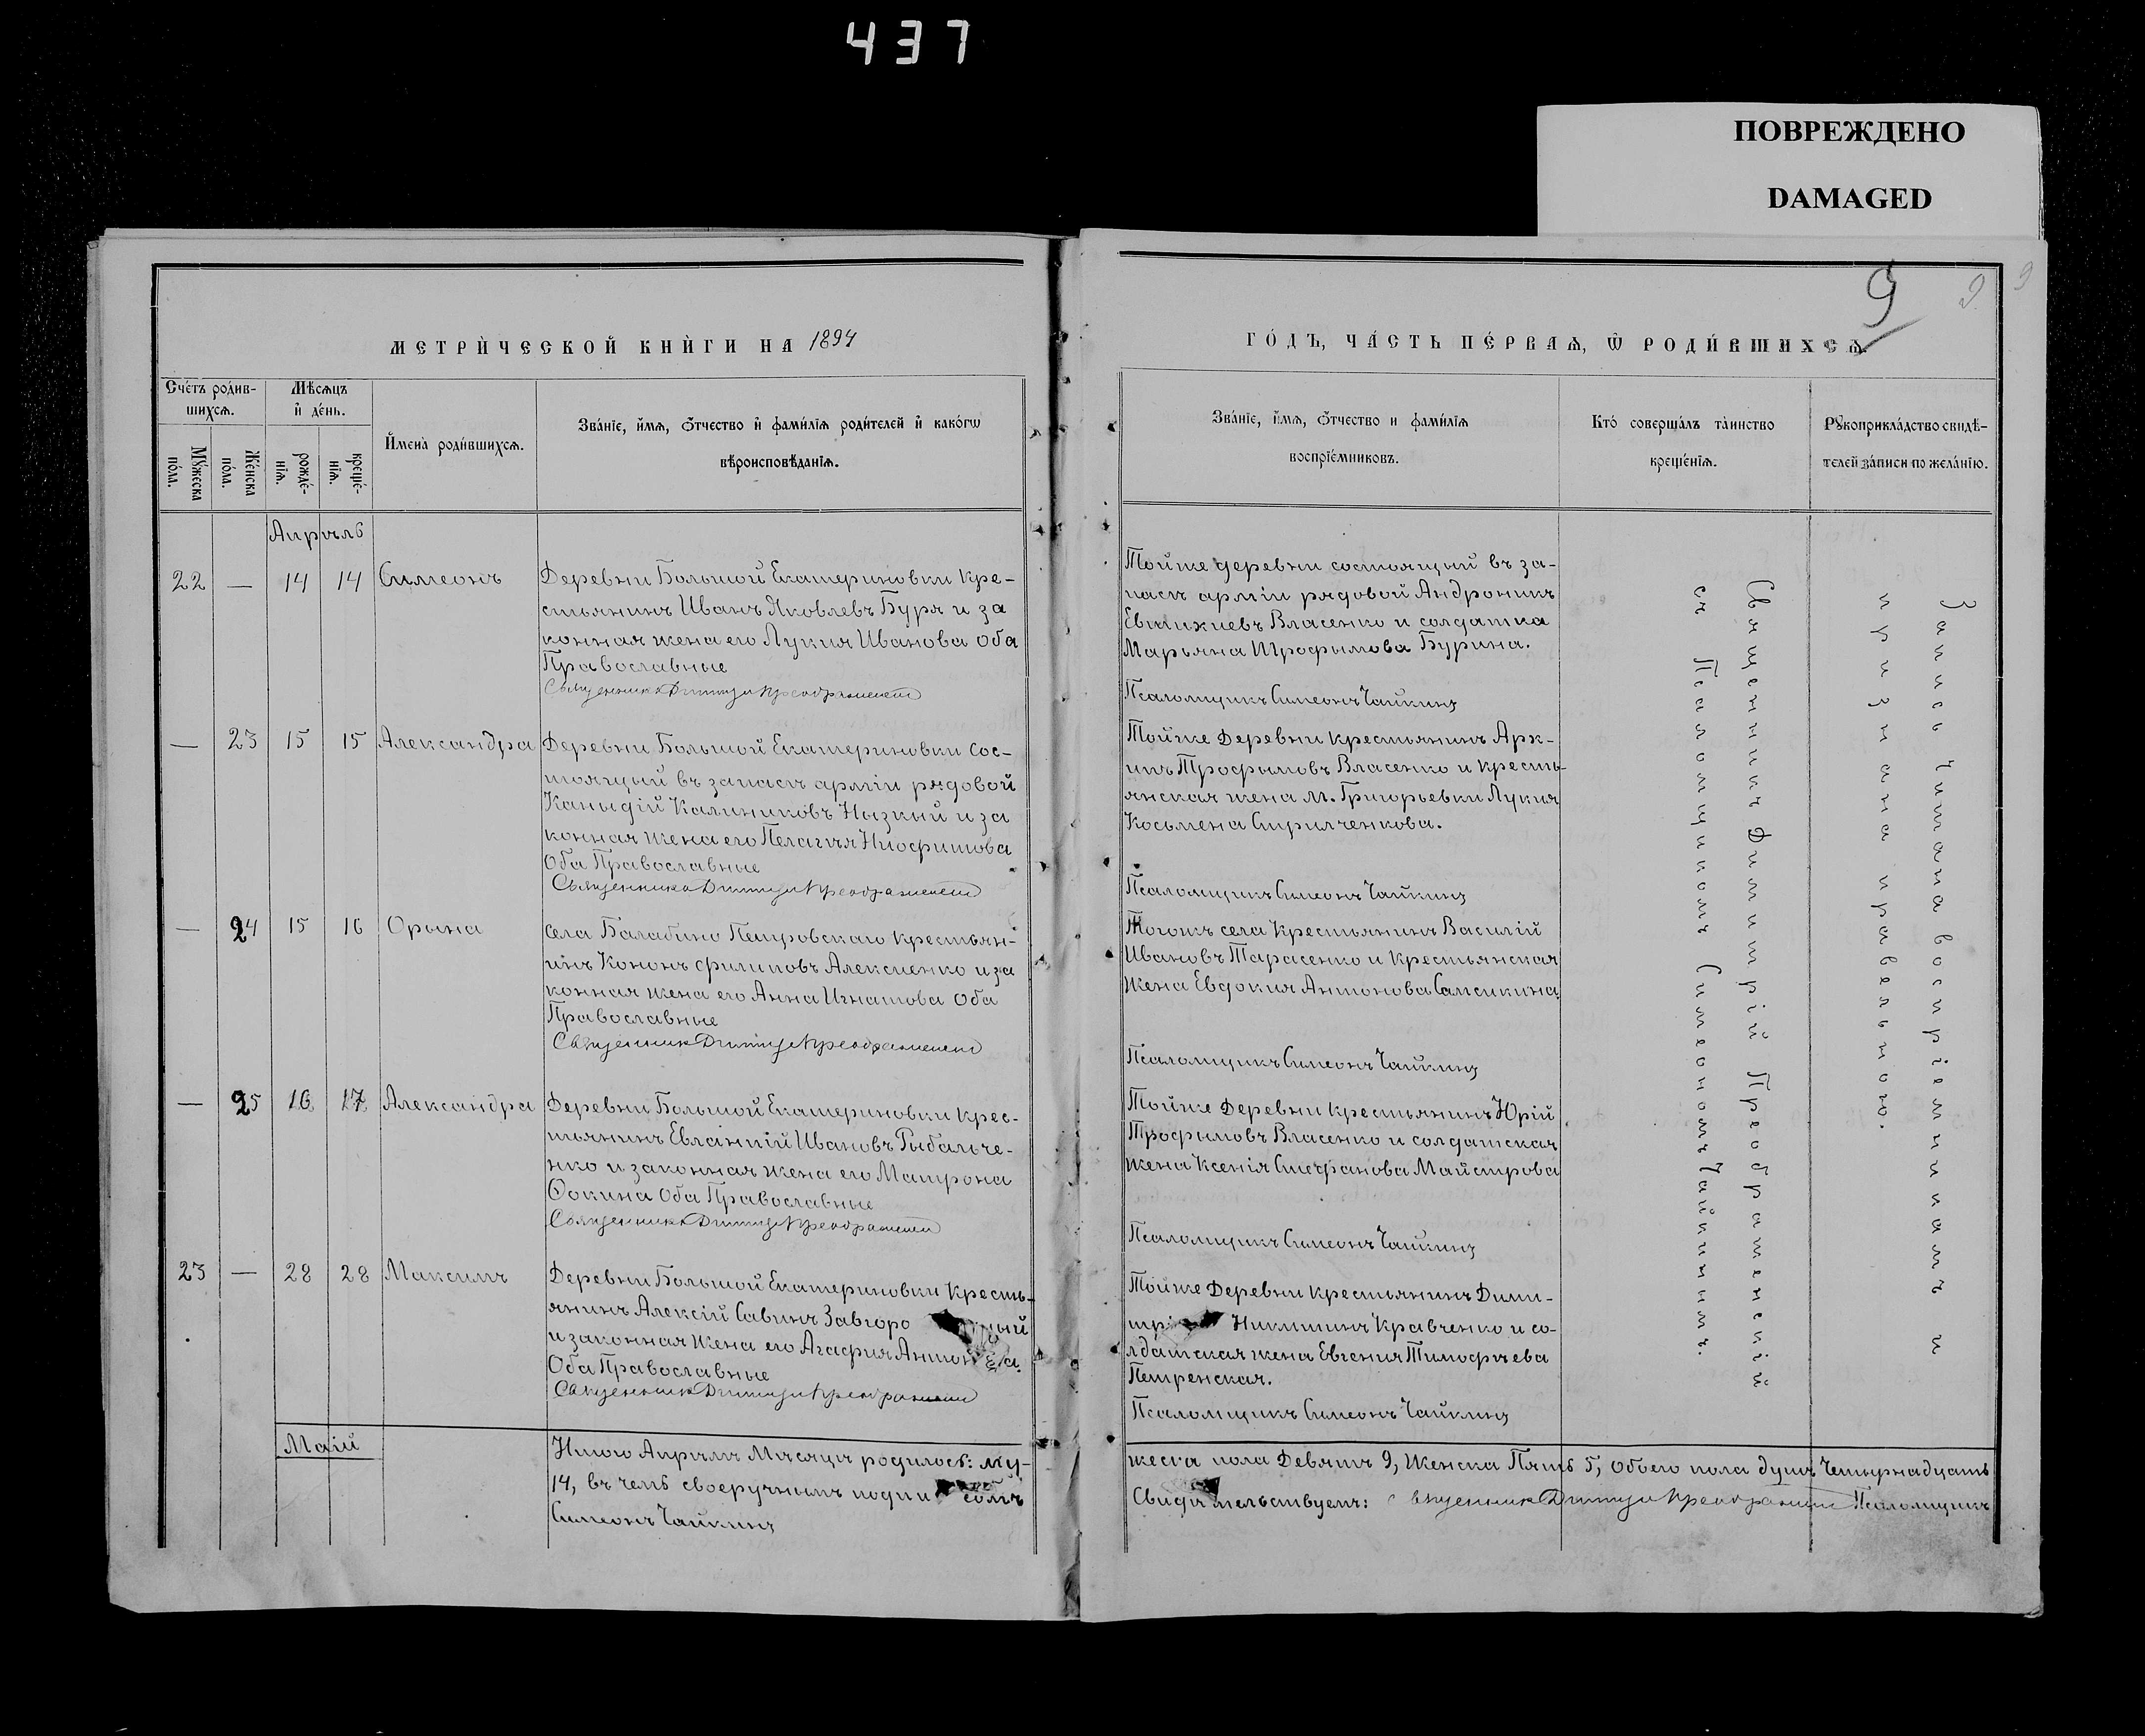 437
ПОВРЕЖДЕНО
DAMAGED
9
9
9
МЕТРИ́ЧЕСКОЙ КНИ́ГИ НА 1894
ГО́ДЪ, ЧА́СТЬ ПЕ́РВАѦ, Ѡ РОДИ́ВШИХСѦ.
Сче́тъ роди́в-
шихсѧ.
Мѣсѧцъ
и҆ де́нь.
Мꙋ́жеска
по́ла.
Же́нска
по́ла.
рожде́-
нїѧ.
креще́-
нїѧ.
И҆мена̀ роди́вшихсѧ.
Зва́нїе, и҆́мѧ, ѻ҆́тчество и҆ фами́лїѧ роди́телей и҆ како́гѡ
вѣроисповѣ́данїѧ.
Зва́нїе, и҆́мѧ, ѻ҆́тчество и фами́лїѧ
воспрїе́мниковъ.
Кто̀ соверша́лъ та́инство
креще́нїѧ.
Рꙋкоприкла́дство свидѣ́-
телей за́писи по жела́нїю.
Апрѣль
22 — 14 14 Симеонъ
Деревни Большой Екатериновки Кре-
стьянинъ Иванъ Яковлевъ Буря и за
конная жена его Лукия Иванова Оба
Православные
Священникъ Димитрій Преображенскій
Тойже деревни состоящий въ за-
пасѣ арміи рядовой Андроникъ
Евтихиевъ Власенко и солдатка
Марьяна Трофымова Бурина.
Псаломщикъ Симеонъ Чайкинъ
— 23 15 15 Александра
Деревни Большой Екатериновки Сос-
тоящый въ запасѣ арміи рядовой
Каныдій Калиниковъ Нызкий и за
конная жена его Пелагѣя Ниофитова
Оба Православные
Священникъ Димитрій Преображенскій
Тойже Деревни крестьянинъ Арх-
ипъ Трофымовъ Власенко и кресть-
янская жена м. Григорьевки Лукия
Косьмена Кирилченкова.
Псаломщикъ Симеонъ Чайкинъ
— 24 15 16 Орына
Села Балабино Петровскаго Крестьян-
инъ Кононъ Филиповъ Алексиенко и за
конная жена его Анна Игнатова Оба
Православные
Священникъ Димитрій Преображенскій
Тогожъ села Крестьянинъ Василій
Ивановъ Тарасенко и Крестьянская
Жена Евдокия Антонова Самсикина.
Псаломщикъ Симеонъ Чайкинъ
— 25 16 17 Александра
Деревни Большой Екатериновки Крес-
тьянинъ Евлампій Ивановъ Рыбальче-
нко и законная жена его Матрона
Фокина Оба Православные
Священникъ Димитрій Преображенскій
Тойже Деревни Крестьянинъ Юрій
Трофымовъ Власенко и солдатская
жена Ксенія Стефанова Майстрова
Псаломщикъ Симеонъ Чайкинъ
23 — 28 28 Максимъ
Деревни Большой Екатериновки Кресть-
янинъ Алексій Савинъ Завгоро ный
и законная жена его Агафия Антонова
Оба Православные
Священникъ Димитрій Преображенскій
Тойже Деревни крестьянинъ Дими-
трі Никитинъ Кравченко и со-
лдатская жена Евгения Тимофѣева
Петренская.
Псаломщикъ Симеонъ Чайкинъ
Священникъ Димитрій Преображенскій
съ Псаломщикомъ Симеономъ Чайкинымъ.
Запись читана воспріемникамъ и
признана правильною.
Маій
Итого Апрѣлѣ Мѣсяцѣ родилось: му-
жеска пола Девять 9, Женска Пять 5, Обоего пола душъ Четырнадцать
14, въ чемъ своеручнымъ подпи сомъ
Свидѣтельствуемъ: Священникъ Димитрій Преображенскій Псаломщикъ
Симеонъ Чайкинъ